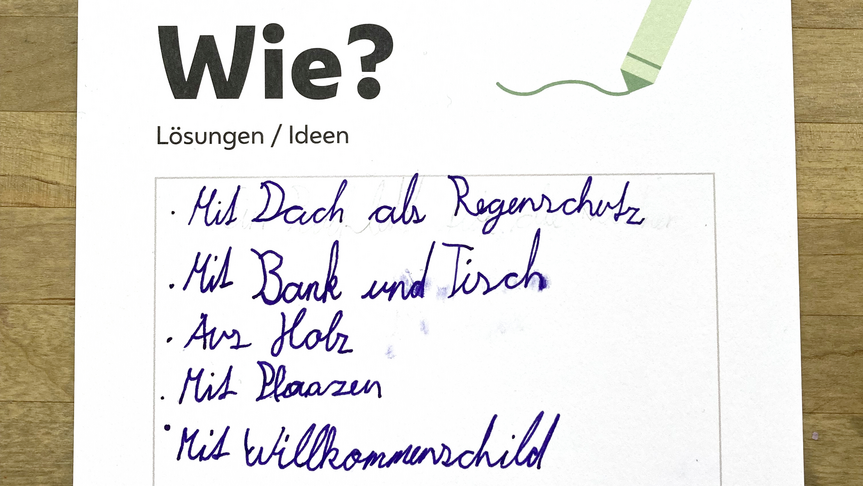 Wie?
Lösungen / Ideen
· Mit Dach als Regenschutz
· Mit Bank und Tisch
· Aus Holz
· Mit
· Mit Willkommenschild